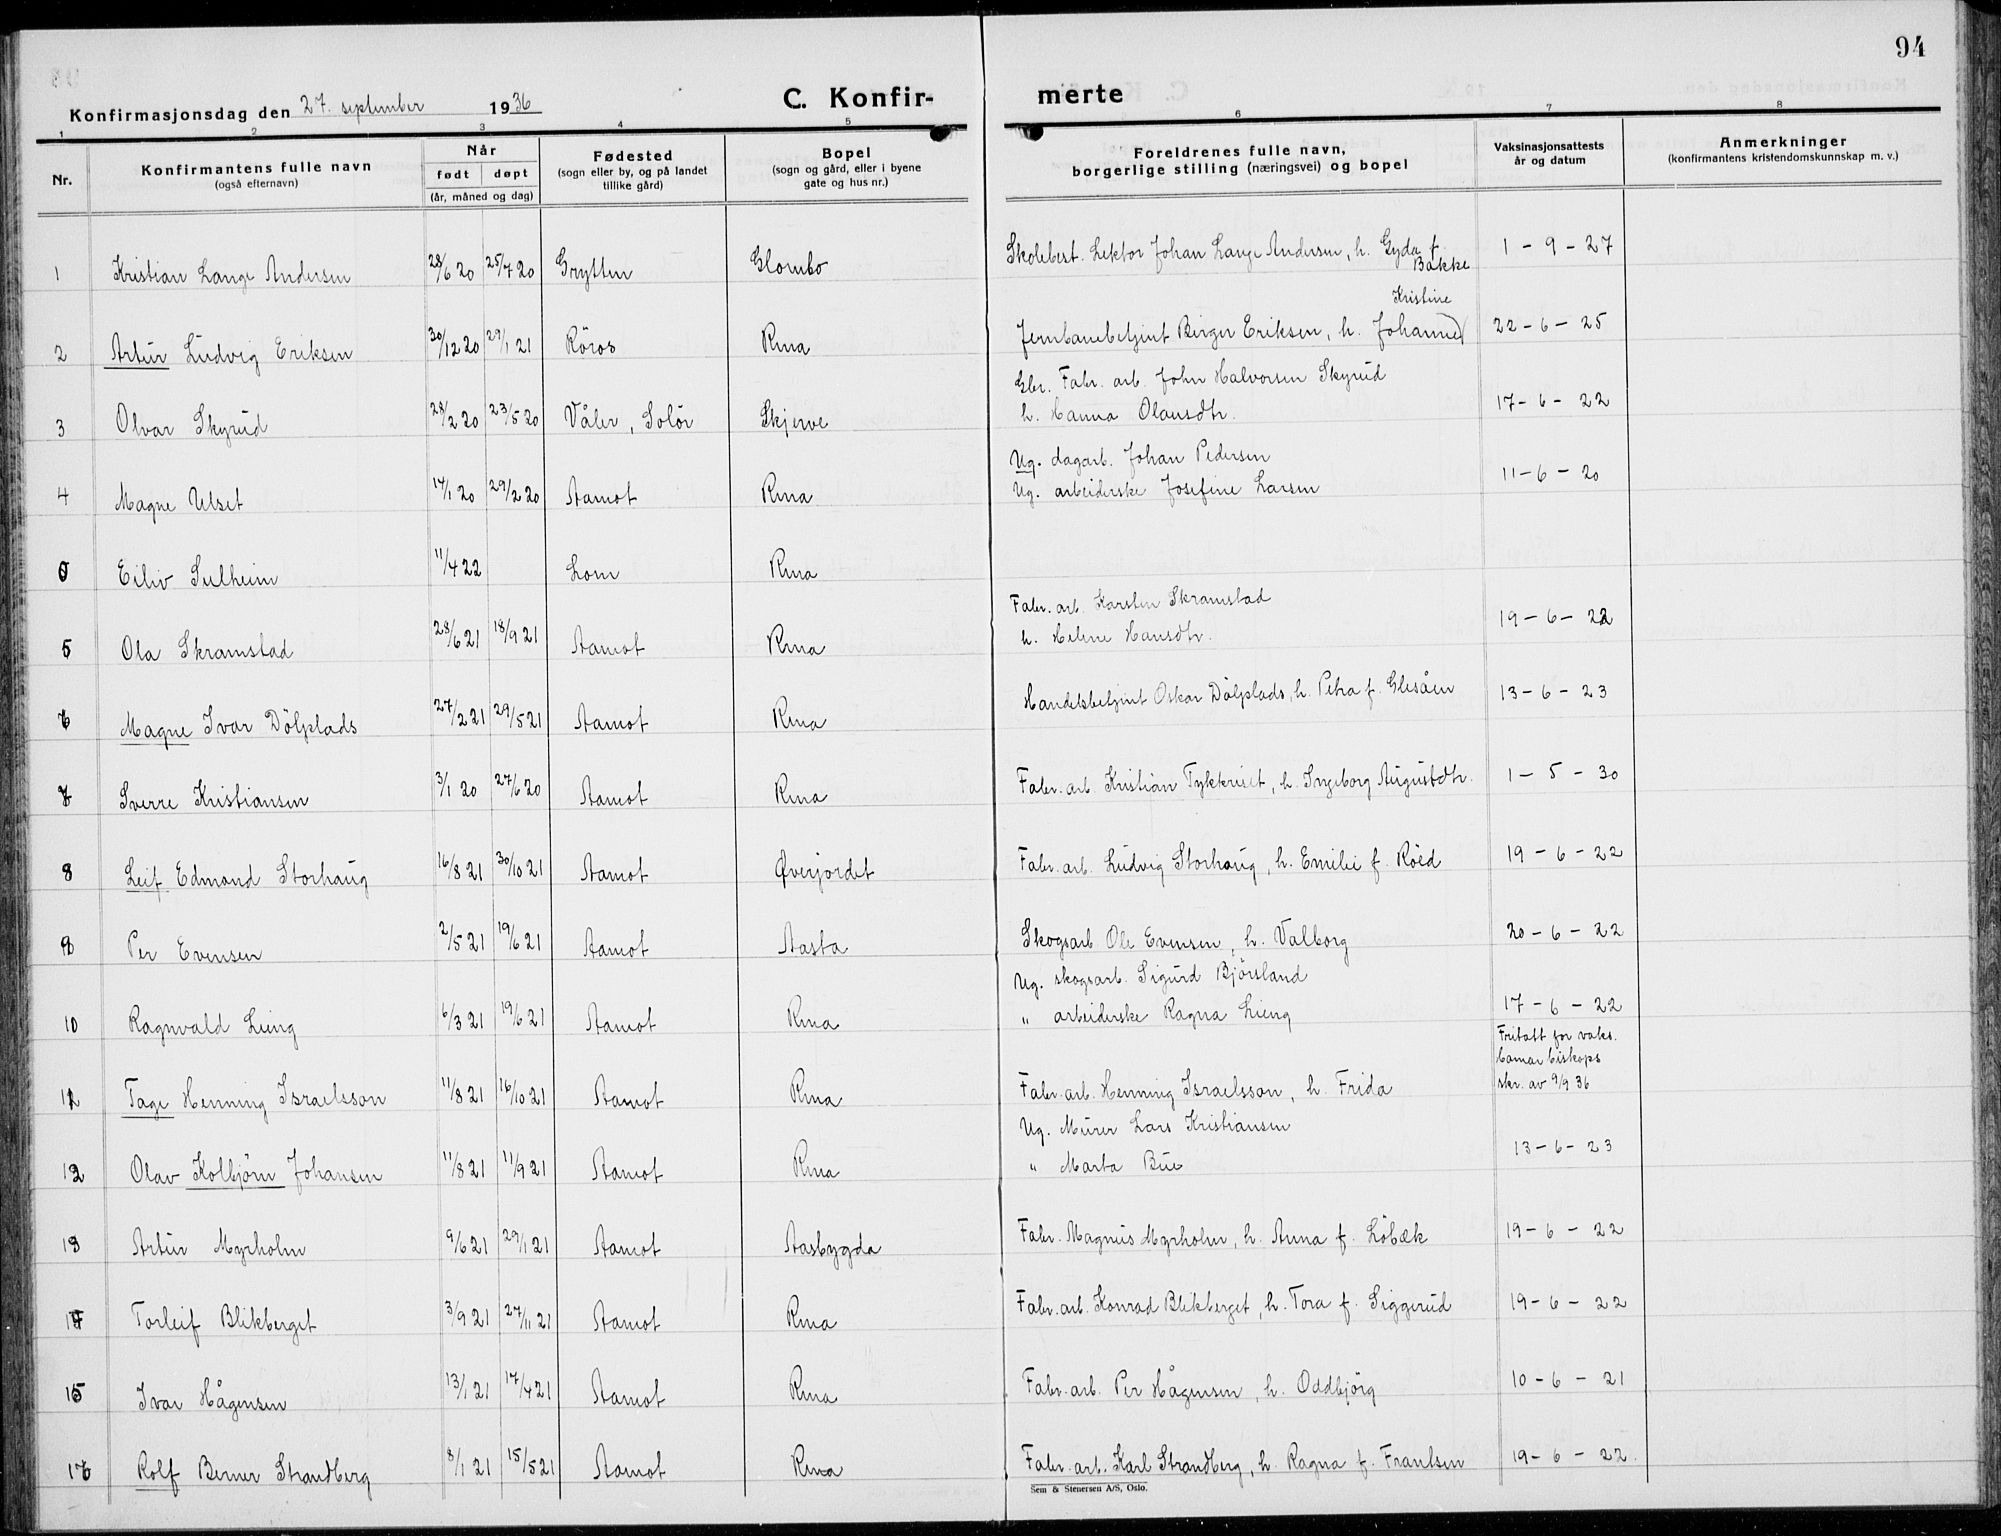 94
Konfirmasjonsdag den 27. september 1936
C. Konfir-
merte
1 2 3 4 5 6 7 8
Nr.
Konfirmantens fulle navn
(også efternavn)
Når
født døpt
(år, måned og dag)
Fødested
(sogn eller by, og på landet
tillike gård)
Bopel
(sogn og gård, eller i byene
gate og hus nr.)
Foreldrenes fulle navn,
borgerlige stilling (næringsvei) og bopel
Vaksinasjonsattests
år og datum
Anmerkninger
(konfirmantens kristendomskunnskap m. v.)
1 Kristian Lange Andersen 28/6 20 25/7 20 Grytten Glombo Skolebest. Lektor Johan Lange Andersen, h. Gyda f. 1 - 9 - 27
Bakke
Kristine
2 Artur Ludvig Eriksen 30/12 20 29/1 21 Röros Rena Jernbanebetjent Birger Eriksen, h. Johanne 22 - 6 - 25
Gbr. Fabr. arb. John Halvorsen Skyrud
3 Olvar Skyrud 28/2 20 23/5 20 Våler, Solör Skjerve h. Hanna Olausdtr. 17 - 6 - 22
Ug. dagarb. Johan Pedersen
4 Magne Ulset 14/1 20 29/2 20 Aamot Rena Ug. arbeiderske Josefine Larsen 11 - 6 - 20
0 Eiliv Sulheim 11/4 22 Lom Rena
Fabr. arb. Karsten Skramstad
5 Ola Skramstad 28/6 21 18/9 21 Aamot Rena h. Helene Hansdtr. 19 - 6 - 22
6 Magne Ivar Dölplads 27/2 21 29/5 21 Aamot Rena Handelsbetjent Oskar Dölplads, h. Petra f. Glesåen 13 - 6 - 23
7 Sverre Kristiansen 3/1 20 27/6 20 Aamot Rena Fabr. arb. Kristian Tykkeriset, h. Ingeborg Augustdtr. 1 - 5 - 30
8 Leif Edmond Storhaug 16/8 21 30/10 21 Aamot Øverjordet Fabr. arb. Ludvig Storhaug, h. Emilie f. Röed 19 - 6 - 22
9 Per Evensen 2/5 21 19/6 21 Aamot Aasta Skogsarb Ole Evensen, h. Valborg 20 - 6 - 22
Ug. skogsarb. Sigurd Björsland
10 Ragnvald Lieng 6/3 21 19/6 21 Aamot Rena " arbeiderske Ragna Lieng 17 - 6 - 22
Fritatt for vaks.
hamar biskops
skr. av 9/9 36
11 Tage Henning Israelsson 11/8 21 16/10 21 Aamot Rena Fabr. arb. Henning Israelsson, h. Frida
Ug. Murer Lars Kristiansen
12 Olav Kolbjörn Johansen 11/8 21 11/9 21 Aamot Rena " Marta Bue 13 - 6 - 23
13 Artur Myrholm 9/6 21 29/1 21 Aamot Aasbygda Fabr. Magnus Myrholm, h. Anna f. Löbæk 19 - 6 - 22
14 Torleif Blikberget 3/9 21 27/11 21 Aamot Rena Fabr. arb. Konrad Blikberget, h. Tora f. Siggerud 19 - 6 - 22
15 Ivar Hågensen 13/1 21 17/4 21 Aamot Rena Fabr. arb. Per Hågensen, h. Oddbjörg 10 - 6 - 21
16 Rolf Berner Strandberg 8/1 21 15/5 21 Aamot Rena Fabr. arb. Karl Strandberg, h. Ragna f. Frantsen 19 - 6 - 22.
Sem & Stenersen A/S, Oslo.